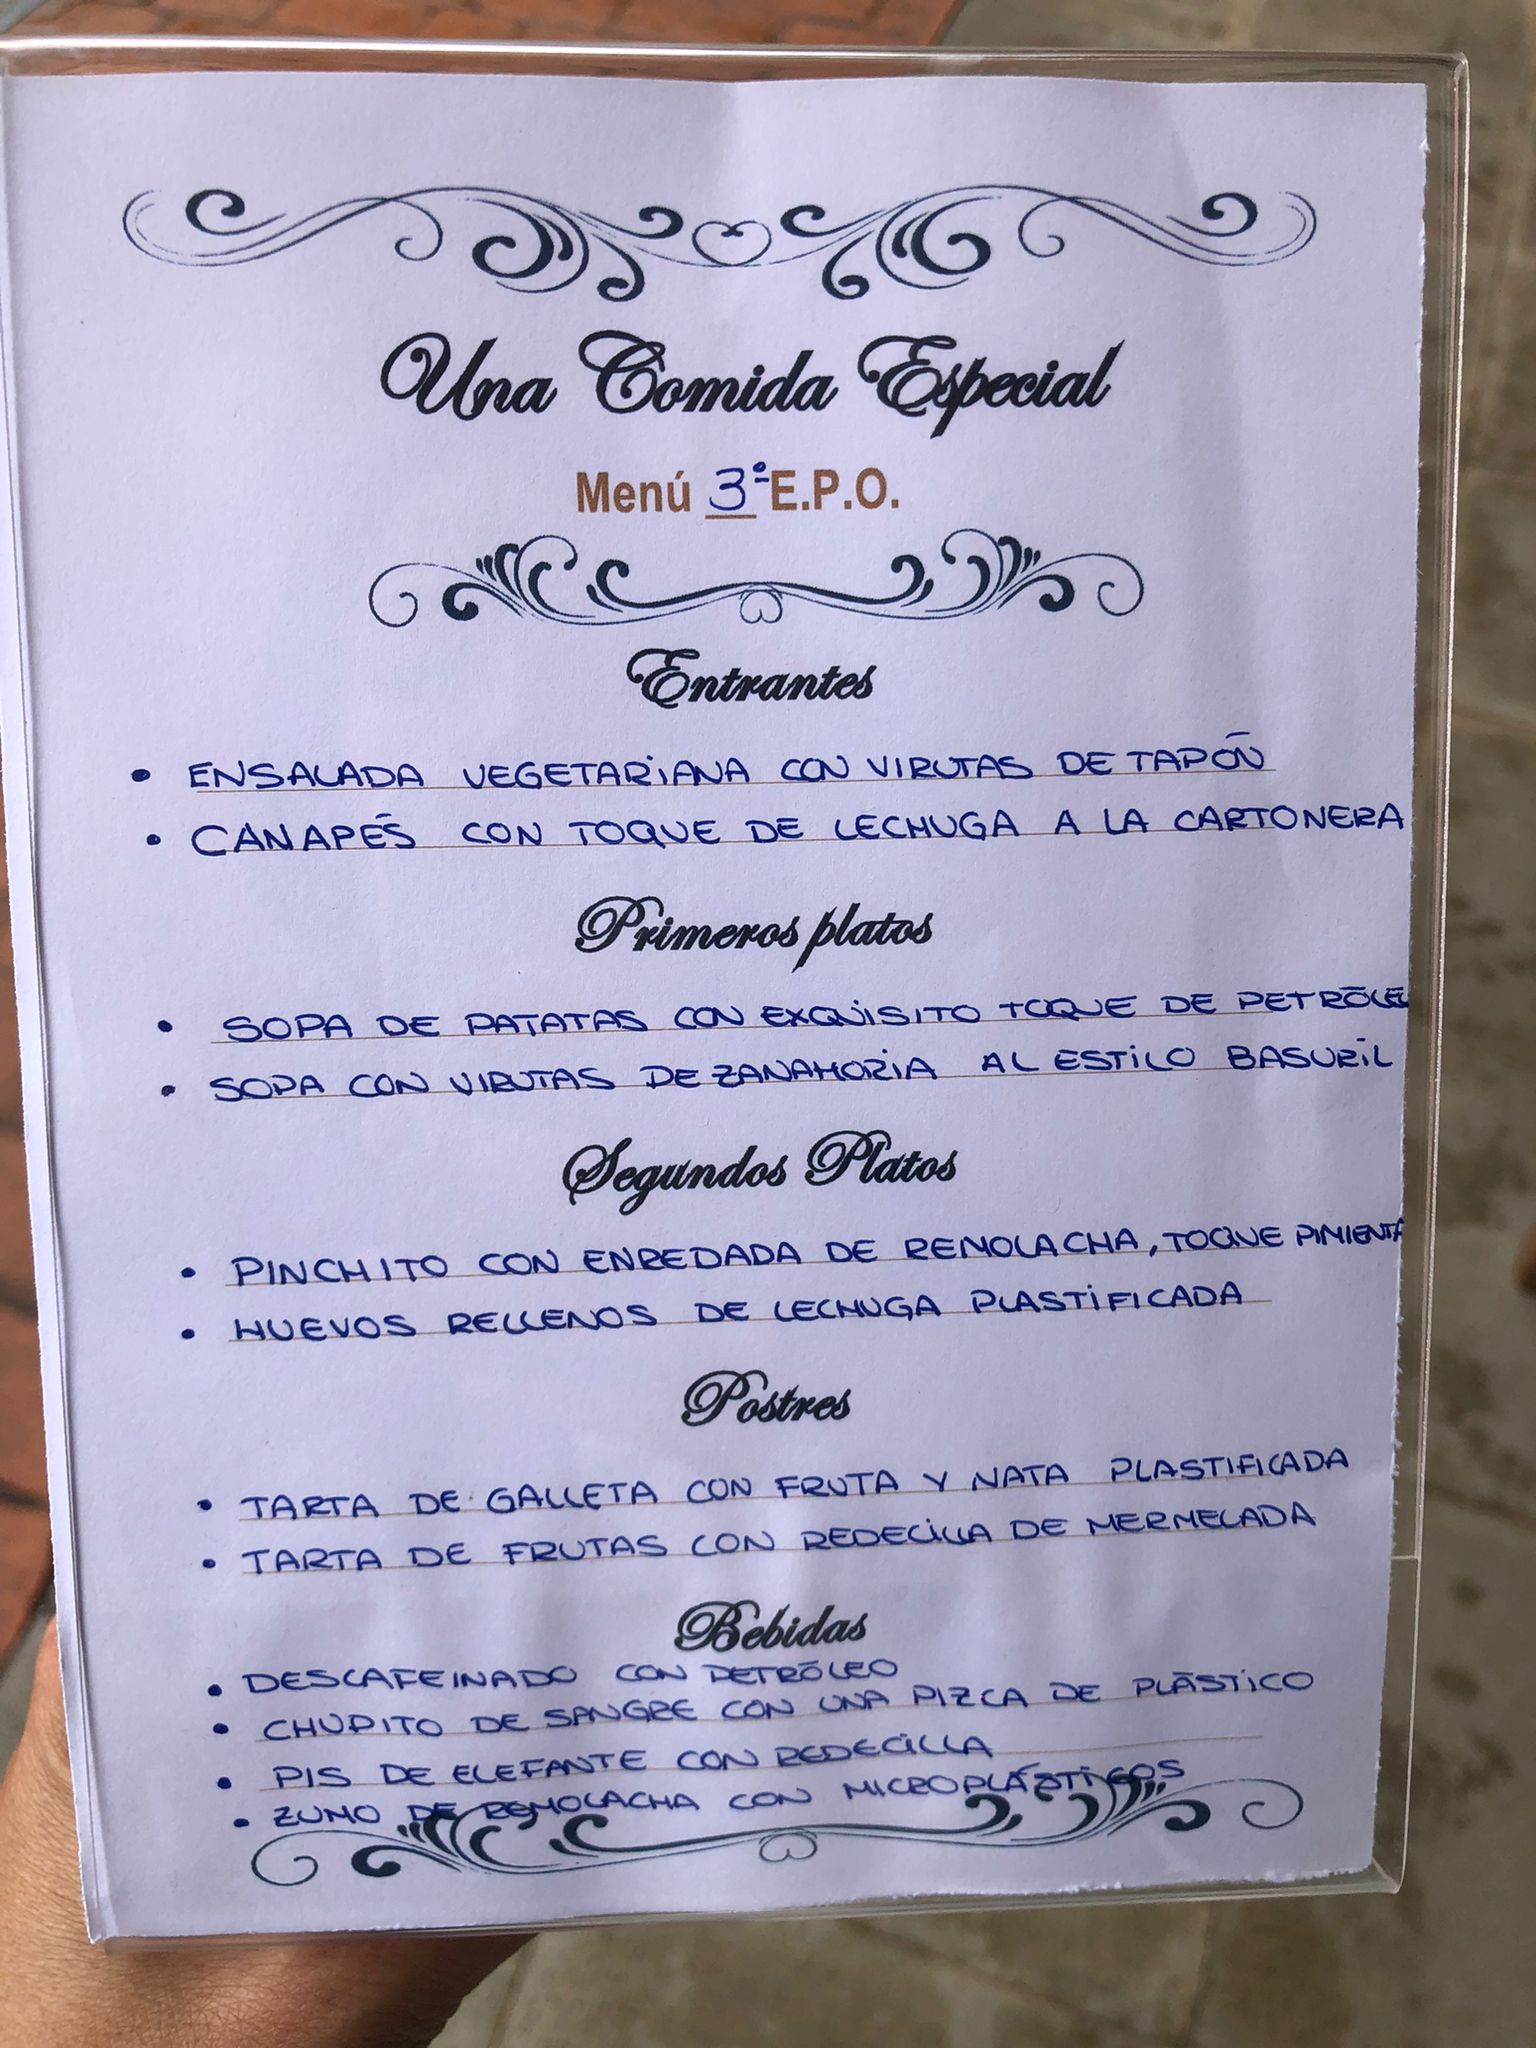 Una Comida Especial
Menú 3º E.P.O.
Entrantes
• ENSALADA VEGETARIANA CON VIRUTAS DE TAPÓN
• CANAPÉS CON TOQUE DE LECHUGA A LA CARTONERA
Primeros platos
• SOPA DE PATATAS CON EXQUISITO TOQUE DE PETRÓLEO
• SOPA CON VIRUTAS DE ZANAHORIA AL ESTILO BASURIL
Segundos Platos
• PINCHITO CON ENREDADA DE REMOLACHA, TOQUE PIMIENTA
• HUEVOS RELLENOS DE LECHUGA PLASTIFICADA
Postres
• TARTA DE GALLETA CON FRUTA Y NATA PLASTIFICADA
• TARTA DE FRUTAS CON REDECILLA DE MERMELADA
Bebidas
• DESCAFEINADO CON PETRÓLEO
• CHUPITO DE SANGRE CON UNA PIZCA DE PLÁSTICO
• PIS DE ELEFANTE CON REDECILLA
• ZUMO DE REMOLACHA CON MICROPLÁSTICOS